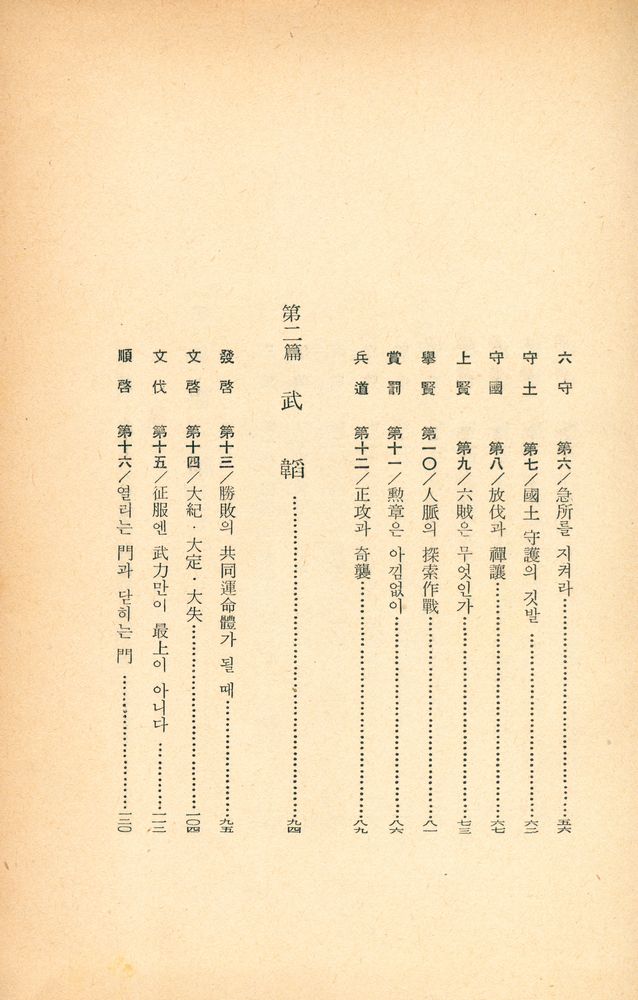 六守 第六／急所를 지켜라 五六
守土 第七／國土 守護의 깃발 六二
守國 第八／放伐과 禪讓 六七
上賢 第九／六賊은 무엇인가 七三
擧賢 第一〇／人脈의 探索作戰 八一
賞罰 第十一／勲章은 아낌없이 八六
兵道 第十二／正攻과 奇襲 八九
第二篇 武韜 九四
發啓 第十三／勝敗의 共同運命體가 될 때 九五
文啓 第十四／大紀·大定·大失 一〇四
文伐 第十五／征服엔 武力만이 最上이 아니다 一一二
順啓 第十六／열리는 門과 닫히는 門 一二〇